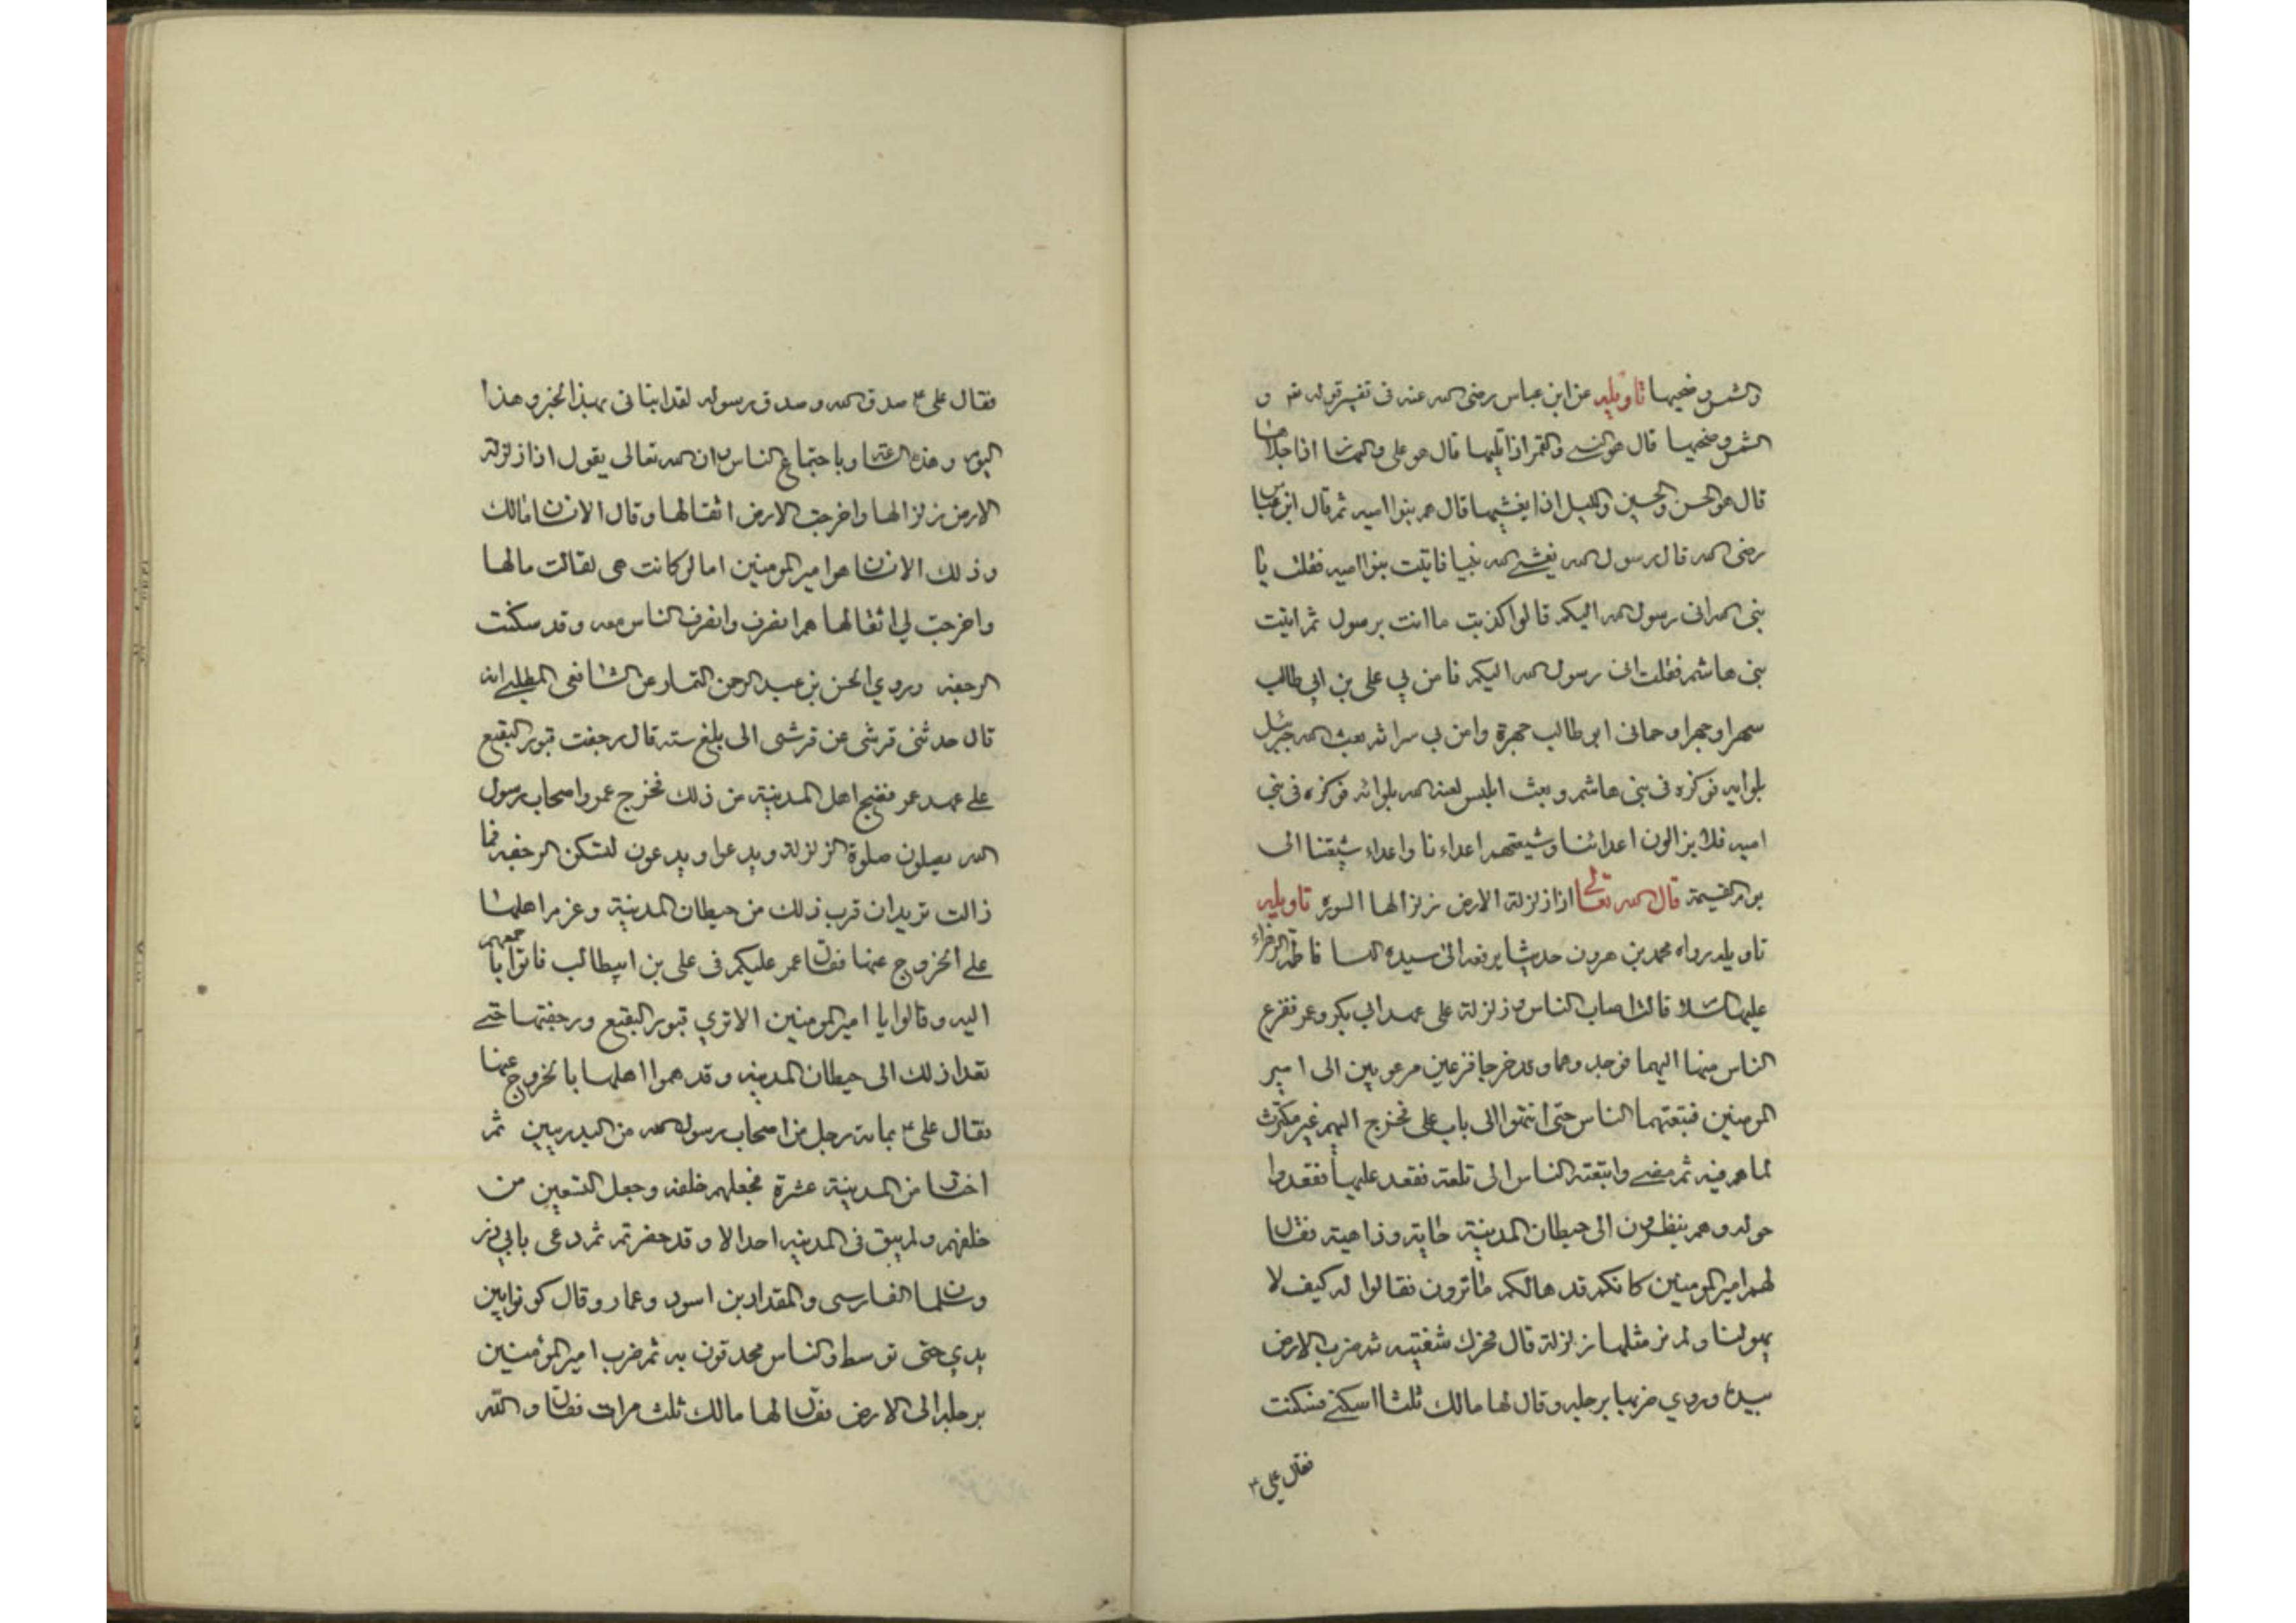 والشمس وضحيها تاويله عن ابن عباس رضي الله عنه في تفسير قوله تع و
الشمس وضحيها قال هو النبي والقمر اذا تليها قال هو علي والنهار اذا جلاها
قال هو الحسن والحسين والليل اذا يغشيها قال هم بنوا اميه ثم قال ابن عباس
رضي الله قال رسول الله بعثني الله نبيا فاتيت بنوا اميه فقلت يا
بني الله اني رسول الله اليكم قالوا كذبت ما انت برسول ثم اتيت
بني هاشم فقلت اني رسول الله اليكم فامن بي علي بن ابي طالب
سهرا وجهرا وحماني ابو طالب جهرة وامن بي سرا ثم بعث الله جبرئيل
بلوايه فركزه في بني هاشم وبعث ابليس لعنه الله بلوائه فركزه في بني
اميه فلا يزالون اعدائنا وشيعتهم اعداءنا واعداء شيعتنا الى
يوم القيمة قال الله تعالى اذا زلزلة الارض زلزالها السوره تاويله
تاويله رواه محمد بن هرون حديثا يرفعه الى سيدة النسا فاطمة الزهراء
عليها السلا قالت اصاب الناس زلزلة على عهد ابي بكر وعمر ففزع
الناس منها اليهما فوجدوهما وقد خرجا فزعين مرعوبين الى امير
المومنين فتبعتهما الناس حتى انتهوا الى باب علي فخرج اليهم غير مكترث
لما هم فيه ثم مضى واتبعته الناس الى تلعة فقعد عليها فقعدوا
حوله وهم ينظرون الى حيطان المدينة جاية وذاهبة فقال
لهم امير المومنين كانكم قد هالكم ما ترون فقالوا له كيف لا
يهولنا ولم نر مثلها زلزلة قال فحرك شفتيه ثم ضرب الارض
بيده وروي ضربها برجله وقال لها مالك ثلثا اسكني فسكنت
فقال علي ع
فقال علي ع صدق الله وصدق رسوله لقد انبانى بهذا الخبر وهذا
اليوم وهذه الساعة وباجتماع الناس ان الله تعالى يقول اذا زلزلة
الارض زلزالها واخرجت الارض اثقالها وقال الانسان مالك
وذلك الانسان هو امير المومنين اما لو كانت هي لقالت مالها
واخرجت لي اثقالها ثم انصرف وانصرف الناس معه وقد سكنت
الرجفه وروي الحسن بن عبد الرحمن التمار عن الشافعي المطلبي انه
قال حدثني قرشي عن قرشي الى بلغ ستة قال رجفت قبور البقيع
على عهد عمر فضج اهل المدينة من ذلك فخرج عمر واصحاب رسول
الله يصلون صلوة الزلزلة ويدعوا ويدعون لتسكن الرجفه فما
زالت تزيد ان قرب ذلك من حيطان المدينة وعزم اهلها
على الخروج عنها فقال عمر عليكم في علي بن ابيطالب فاتوا باجمعهم
اليه وقالوا يا امير المومنين الا تري قبور البقيع ورجفتها حتى
تعدا ذلك الى حيطان المدينه وقد هموا اهلها بالخروج عنها
فقال علي ع بماية رجل من اصحاب رسول الله من البدريين ثم
اختار من المدينة عشرة فجعلهم خلفه وجعل التسعين من
خلفهم ولم يبق في المدينه احدا الا وقد حضر ثم دعى بابي ذر
وسلمان الفارسي والمقداد بن اسود وعمار وقال كونوا بين
يدي حتى توسط والناس محدقون به ثم ضرب امير المؤمنين
برجله الى الارض فقال لها مالك ثلث مرات فقال والله